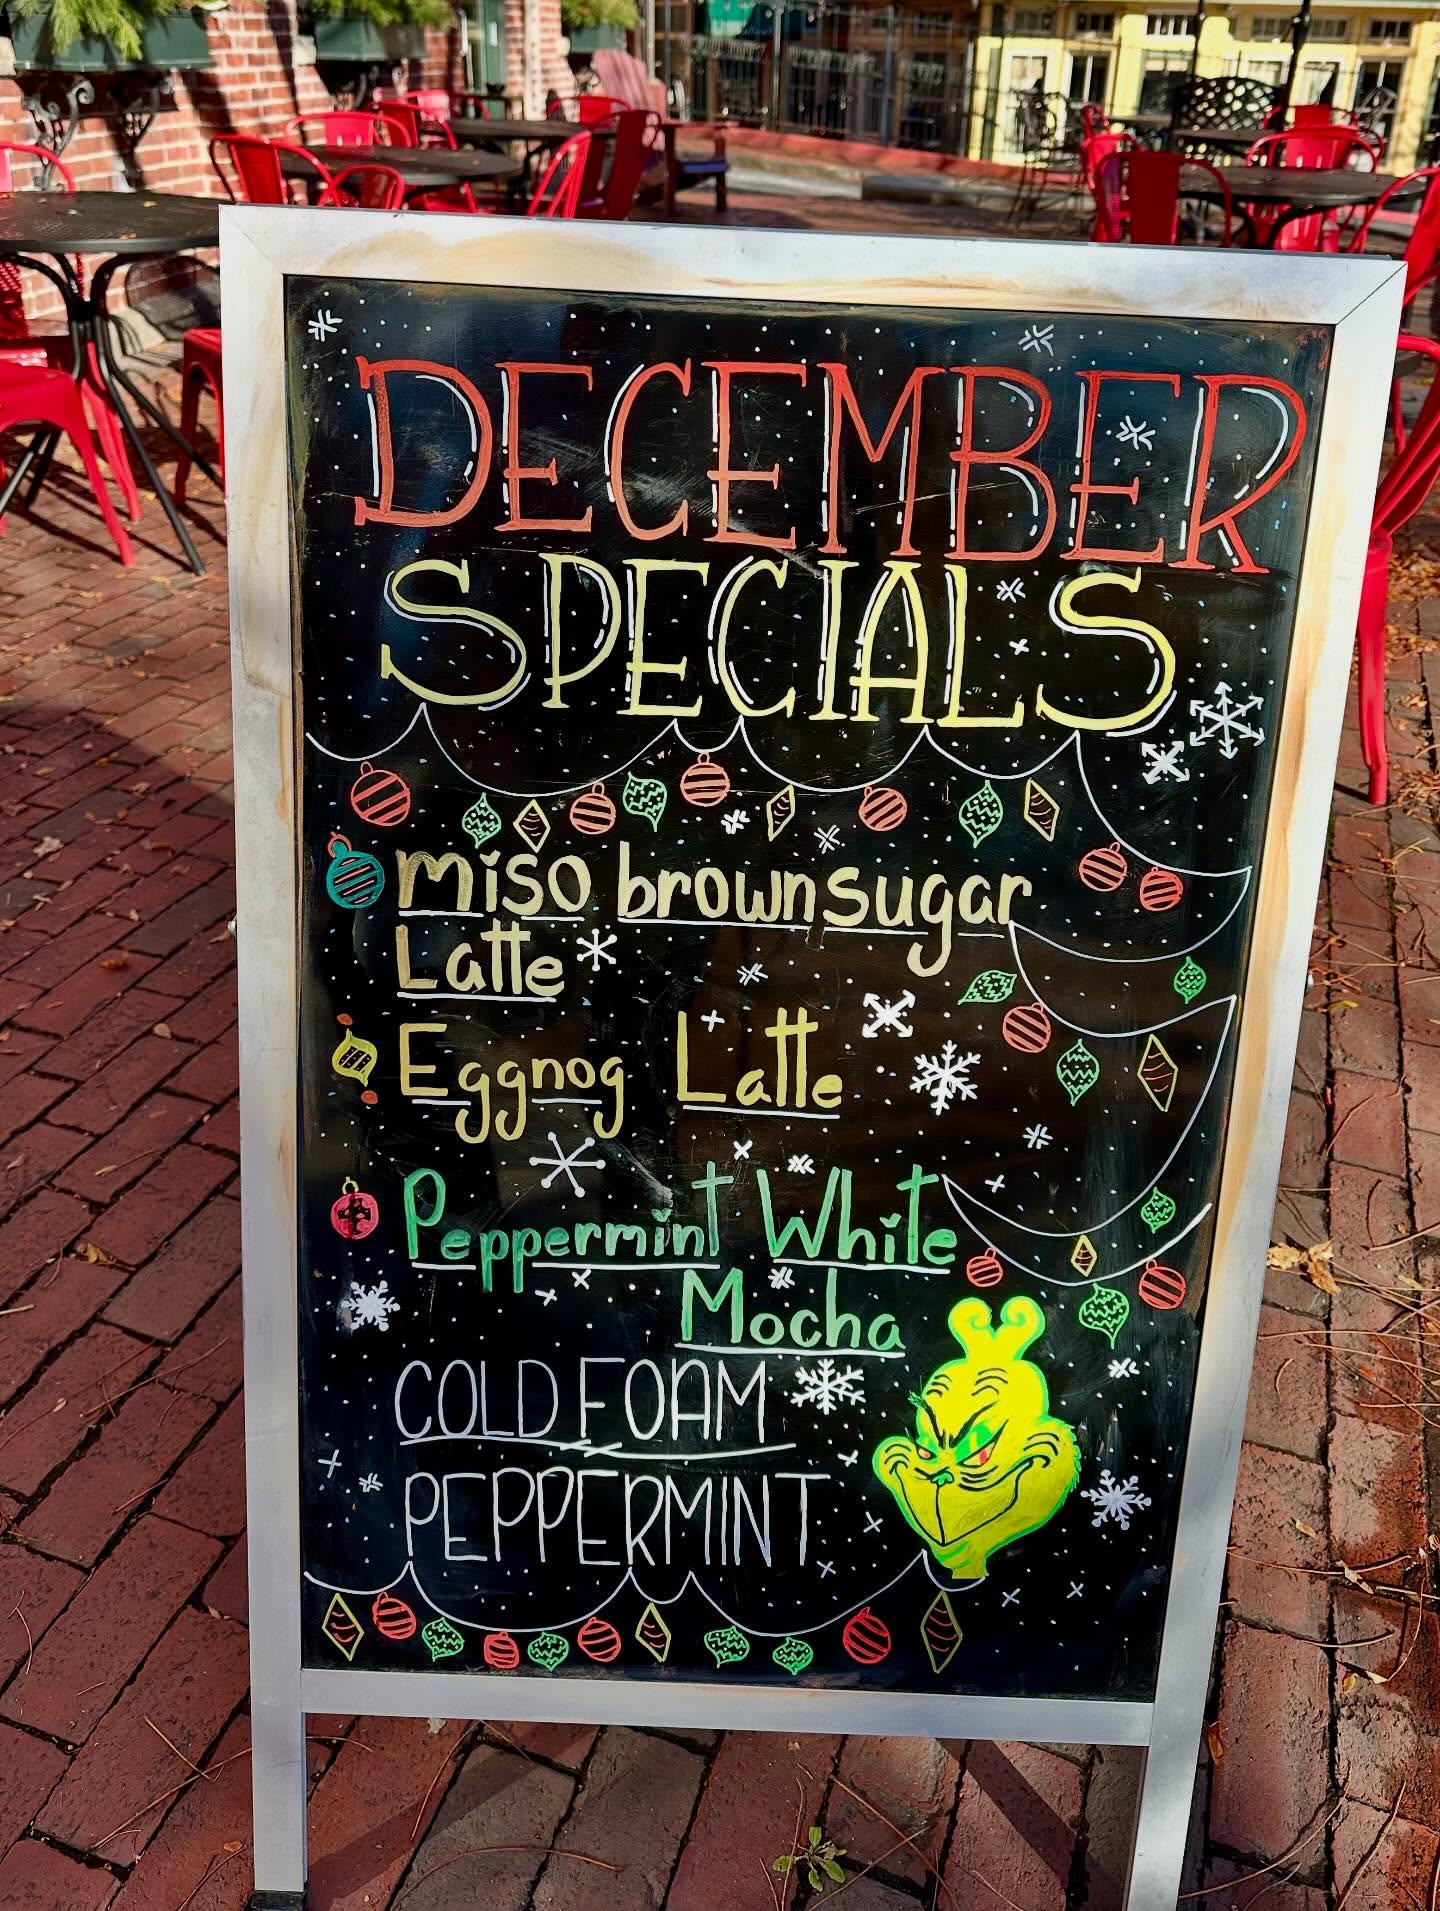 DECEMBER
SPECIALS
miso brown sugar
Latte
Eggnog Latte
Peppermint White
Mocha
COLD FOAM
PEPPERMINT